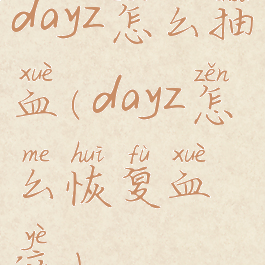 dayz怎么抽
xuè zěn
血(dayz怎
me huī fù xuè
么恢复血
yè
液)